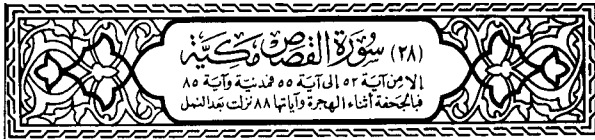 (٢٨) سُورَةُ القَصَصِ مَكيَّة
إلا من آية ٥٢ إلى آية ٥٥ فمدنية وآية ٨٥
فبالجحفة أثناء الهجرة وآياتها ٨٨ نزلت بعد النمل